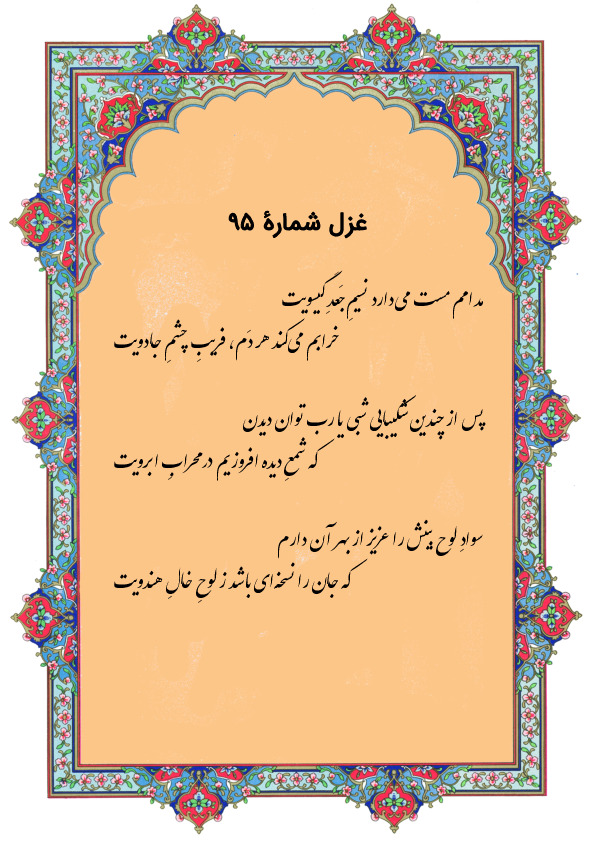 غزل شمارهٔ ۹۵
مدامم مست می‌دارد نسیمِ جَعدِ گیسویت
خرابم می‌کند هر دَم، فریبِ چشمِ جادویت
پس از چندین شکیبایی شبی یا رب توان دیدن
که شمعِ دیده افروزیم در محرابِ ابرویت
سوادِ لوحِ بینش را عزیز از بهر آن دارم
که جان را نسخه‌ای باشد ز لوحِ خالِ هندویت